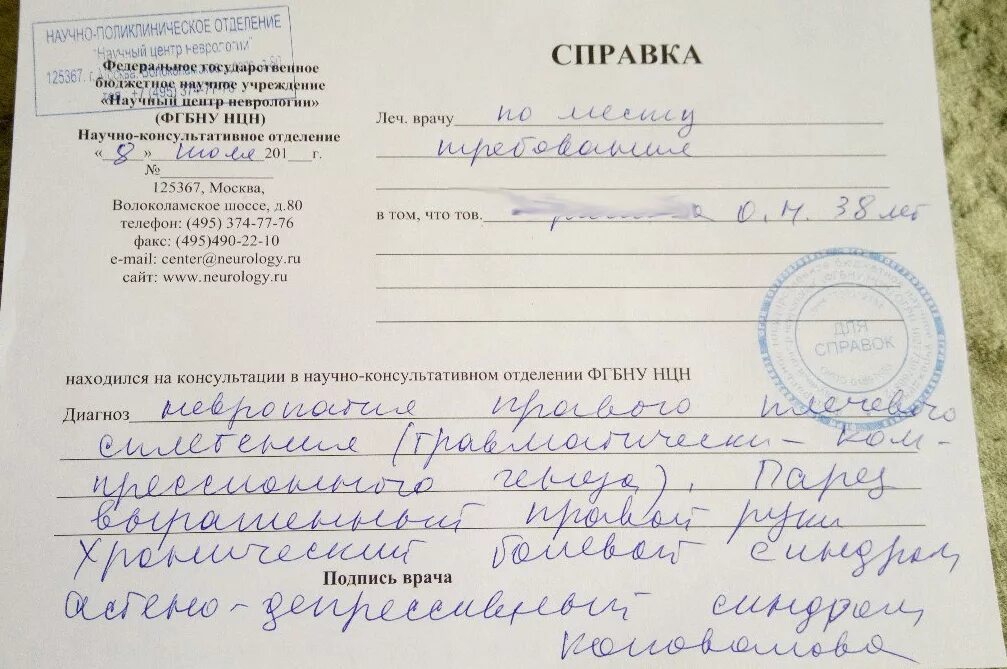 НАУЧНО-ПОЛИКЛИНИЧЕСКОЕ ОТДЕЛЕНИЕ
"Научный центр неврологии"
125367, г. Москва, Волоколамское
Федеральное государственное
бюджетное научное учреждение
«Научный центр неврологии»
(ФГБНУ НЦН)
Научно-консультативное отделение
« 8 » июля 201 г.
№
125367, Москва,
Волоколамское шоссе, д.80
телефон: (495) 374-77-76
факс: (495)490-22-10
e-mail: center@neurology.ru
сайт: www.neurology.ru
СПРАВКА
Леч. врачу по месту
требования
в том, что тов. О. Н. 38 лет
ДЛЯ
СПРАВОК
находился на консультации в научно-консультативном отделении ФГБНУ НЦН
Диагноз невропатия правого плечевого
сплетения (травматически-ком-
прессионного генеза). Парез
выраженный правой руки
Хронический болевой синдром
Подпись врача
Астено-депрессивный синдром
Коновалова